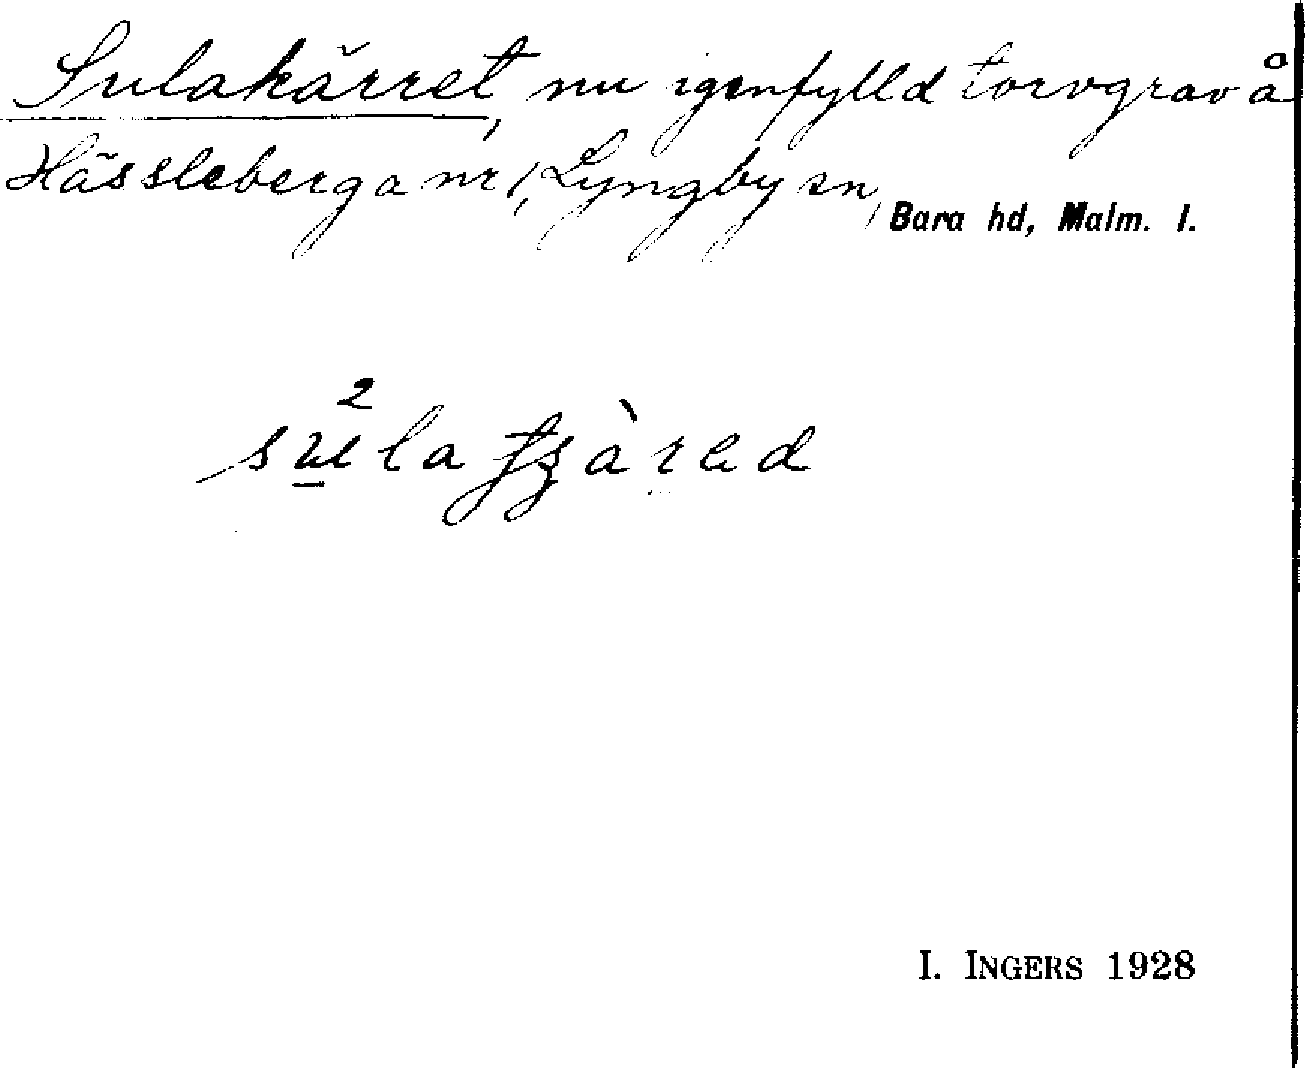 Sulakärret, nu igenfylld torvgrav å
Hässleberga nr 1, Lyngby sn, Bara hd, Malm. l.
I. INGERS 1928